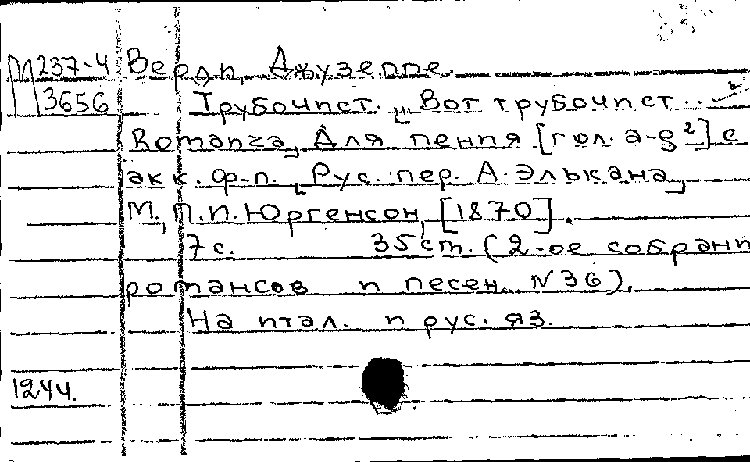 М 237-4 Верди, Джузеппе.
3656 Трубочист. „Вот трубочист...“
Romanza, Для пения [гол. a-g²] с
акк. ф-п. Рус. пер. А. Элькана,
М., П. И. Юргенсон, [1870].
7 с. 35 cт. (2-ое собрани
романсов и песен. N 36).
На итал. и рус. яз.
1244.